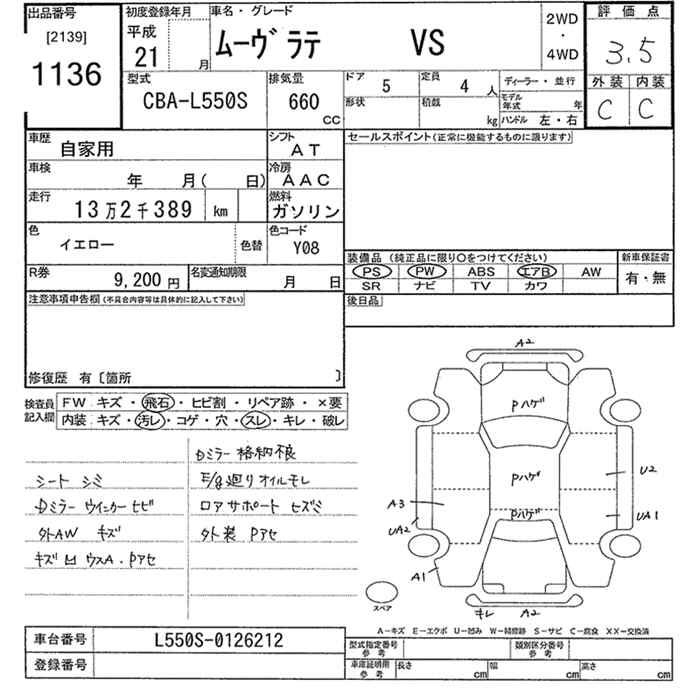 出品番号 初度登録年月 車名・グレード 2WD・4WD 評価点
[2139] 平成 ムーヴ ラテ VS 3.5
1136 21 月
型式 排気量 ドア 定員 ディーラー・並行 外装 内装
CBA-L550S 660 CC 5 4 人 C C
形状 積載 kg モデル年式 年
ハンドル 左・右
車歴 自家用 シフト AT セールスポイント(正常に機能するものに限ります)
車検 年 月( 日) 冷房 AAC
走行 13万2千389 km 燃料 ガソリン
色 イエロー 色替 色コード Y08
装備品 (純正品に限り○をつけてください) 新車保証書
PS PW ABS エアB AW 有・無
SR ナビ TV カワ
R券 9,200 円 名変通知期限 月 日
後日品
注意事項申告欄(不具合内容等は具体的に記入して下さい)
修復歴 有〔箇所 〕
検査員記入欄
FW キズ・飛石・ヒビ割・リペア跡・×要
内装 キズ・汚レ・コゲ・穴・スレ・キレ・破レ
Dミラー 格納不良
シート シミ
E/g廻りオイルモレ
Dミラー ウインカー ヒビ
ロアサポート セズミ
外AW キズ
外装 Pアセ
キズ 凹 ウスA・Pアセ
A2
Pハゲ
Pハゲ
U2
Pハゲ
A3
UA2
UA1
A1
スペア
キレ A2
A-キズ E-エクボ U-凹み W-補修跡 S-サビ C-腐食 XX-交換済
車台番号 L550S-0126212
登録番号
型式指定番号 参考 類別区分番号 参考
車庫証明用 参考 長さ cm 幅 cm 高さ cm